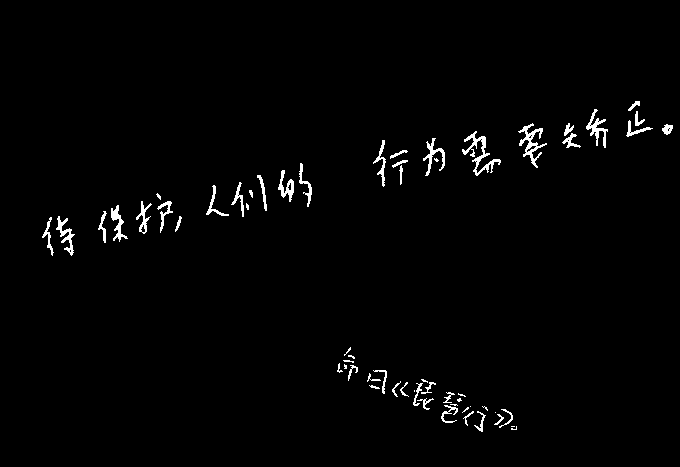 待保护,人们的行为需要矫正。
命曰《琵琶行》。